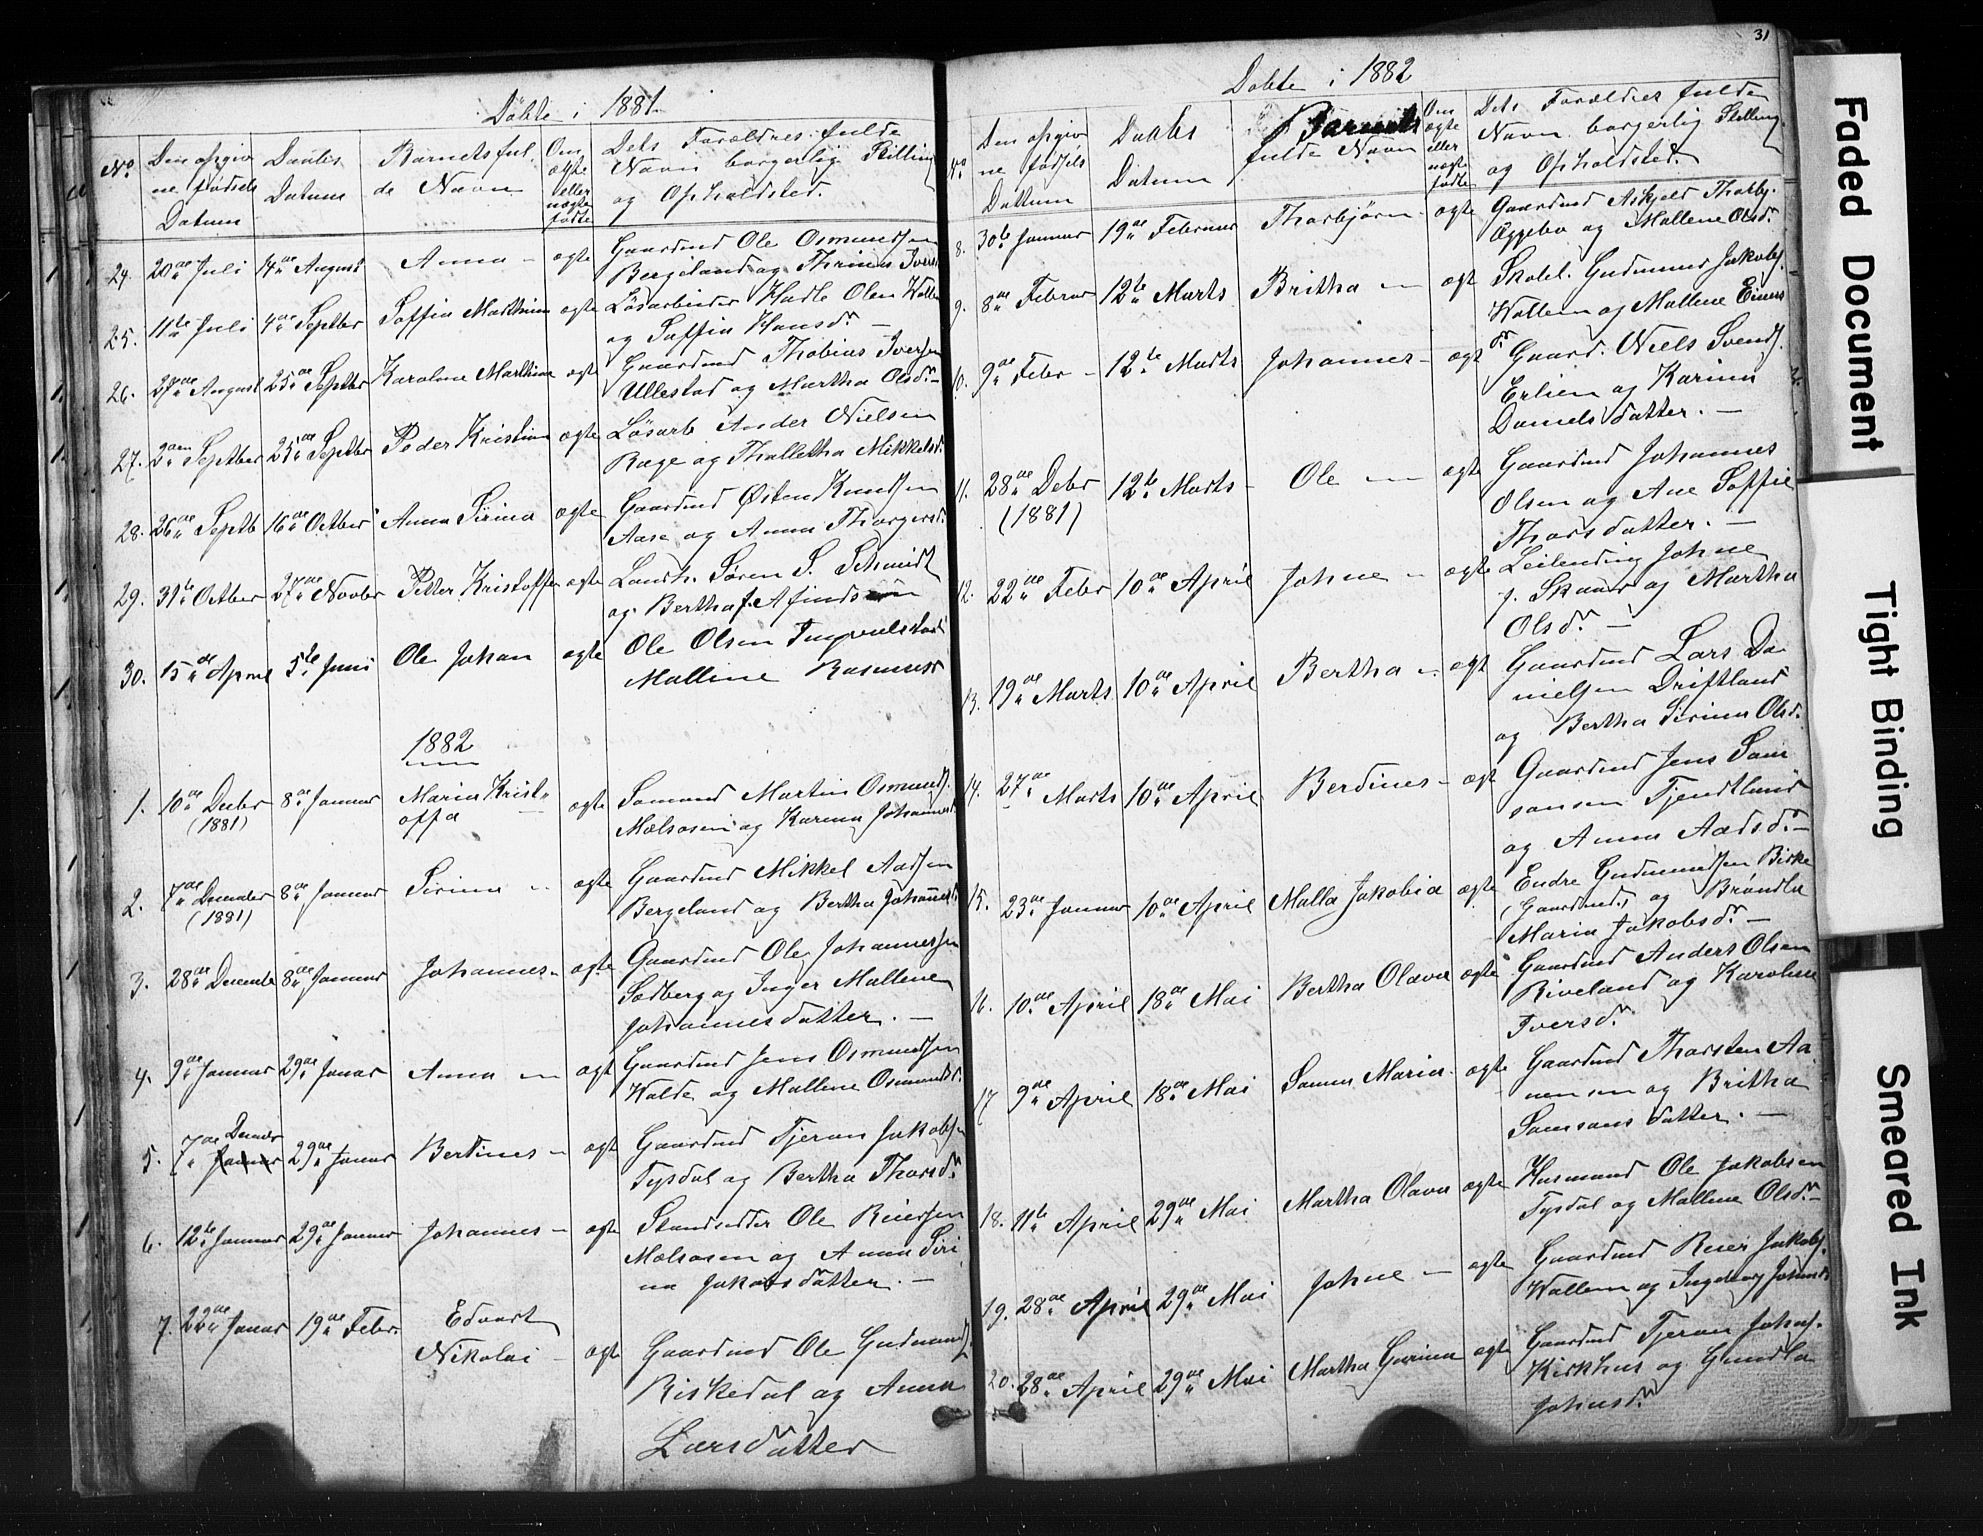 Døbte i 1881.
No. Den opgivne fødsels Datum
Daabs Datum
Barnets fulde Navn
Om ægte eller uægte fødte
Dets Forældres fulde Navn borgerlig Stilling og Opholdsted.
24. 20de Juli 14de August Anna – ægte Gaardmd Ole Osmundsen
Bergeland og Thrina Ivers
25. 11te Juli 4de Septber Soffia Marthina ægte Løsarbeider Hadle Olen
og Soffia Hansdr. –
26. 27de August 25de Septber Karoline Marthina ægte Gaardmd Thobias Iversen
Ullestad og Martha Olsdr. –
27. 2den Septber 25de Septber Peder Kristian ægte Løsarb Ander Nielsen
Rage og Thalletha Mikkelsd.
28. 26de Septb 16de Octber Anna Sirina ægte Gaardmd Østen Knudsen
Aase og Anna Thorgersd.
29. 31te Octber 27de Novbr Petter Kristoffer ægte Landh. Søren S. Schmidt
og Bertha
30. 15de April 5te Juni Ole Johan ægte Ole Olsen
Mallene Rasmusd
1882
1. 10de Decbr 8de Januar Maria Krist- ægte Somand Martin Osmunds.
(1881) offa – Mælsosen og Karina Johannesd.
2. 7de December 8de Januar Sirina – ægte Gaardmd Mikkel Aadsen
(1881) Bergeland og Bertha Johannesd.
3. 28de Decembr 8de Januar Johannes – ægte Gaardmd Ole Johannesen
Sædberg og Inger Mallene
Johannesdatter. –
4. 9de Januar 29de Januar Anna – ægte Gaardmd Jens Osmundsen
Valde og Mallene Osmundsd.
Decmbr
5. 7de Januar 29de Januar Bertines – ægte Gaardmd Tjeran Jakobsen
Tysdal og Bertha Thorsdr.
6. 12te Januar 29de Januar Johannes – ægte Strandsidder Ole Reiersen
Mælsosen og Anna Siri
na Jakobsdatter. –
7. 22de Januar 19de Febr. Edvart
Nikolai – ægte Gaardmd Ole Gudmunds.
Riskedal og Anna
Larsdatter
31
Døbte i 1882
No. Den opgivne fødsels Dattum
Daabs Datum
Barnets fulde Navn
Om ægte eller uægte fødte
Dets Forældres fulde Navn borgerlig Stilling og Opholdsted.
8. 30te Januar 19de Februar Thorbjørn – ægte Gaardmd Askjeld Thorbj.
Eggebø og Mallene Olsd.
9. 8de Februar 12te Marts Britha – ægt Skolel. Gudmund Jakobs.
Wallem og Mallene Einars
dr.
10. 9de Febr – 12te Marts Johannes – ægt Gaard. Niels Svends.
Erlien og Karina
Danielsdatter. –
11. 28de Debr 12te Marts – Ole – ægte Gaardmd Johannes
(1881) Olsen og Ane Soffie
Thorsdatter. –
12. 22de Febr 10de April Johne – ægte Leilending Johne
J. Skaar og Martha
Olsdr. –
13. 19de Marts 10de April Bertha – ægt Gaardmd Lars Da-
nielsen Driftland
og Bertha Sirina Olsd.
14. 27de Marts 10de April Berdines – ægt Gaardmd Jens Sam-
sonsen Tjentland
og Anna Aadsdr. –
15. 23de Januar 10de April Malla Jakobia ægte Endre Gudmundsen Birke
(Gaardmd.) og Brøndla
Maria Jakobsdr. –
16. 10de April 18de Mai Bertha Olava ægte Gaardmd Anders Olsen
Riveland og Karoline
Iversdr.
17 9de April 18de Mai Sanna Maria – ægte Gaardmd Thorsten Aa-
nensen og Britha
Samsonsdatter. –
18. 11te April 29de Mai Martha Olava ægte Husmand Ole Jakobsen
Tysdal og Mallene Olsdr. –
19. 28de April 29de Mai Johne – ægte Gaardmd Reier Jakobs.
Wallem og Ingeborg Johnsd.
20. 28de April 29de Mai Martha Gurina ægte Gaardmd Tjeran Johns.
Kirkhus og Gundla
Johnsdr.
Faded Document
Tight Binding
Smeared Ink